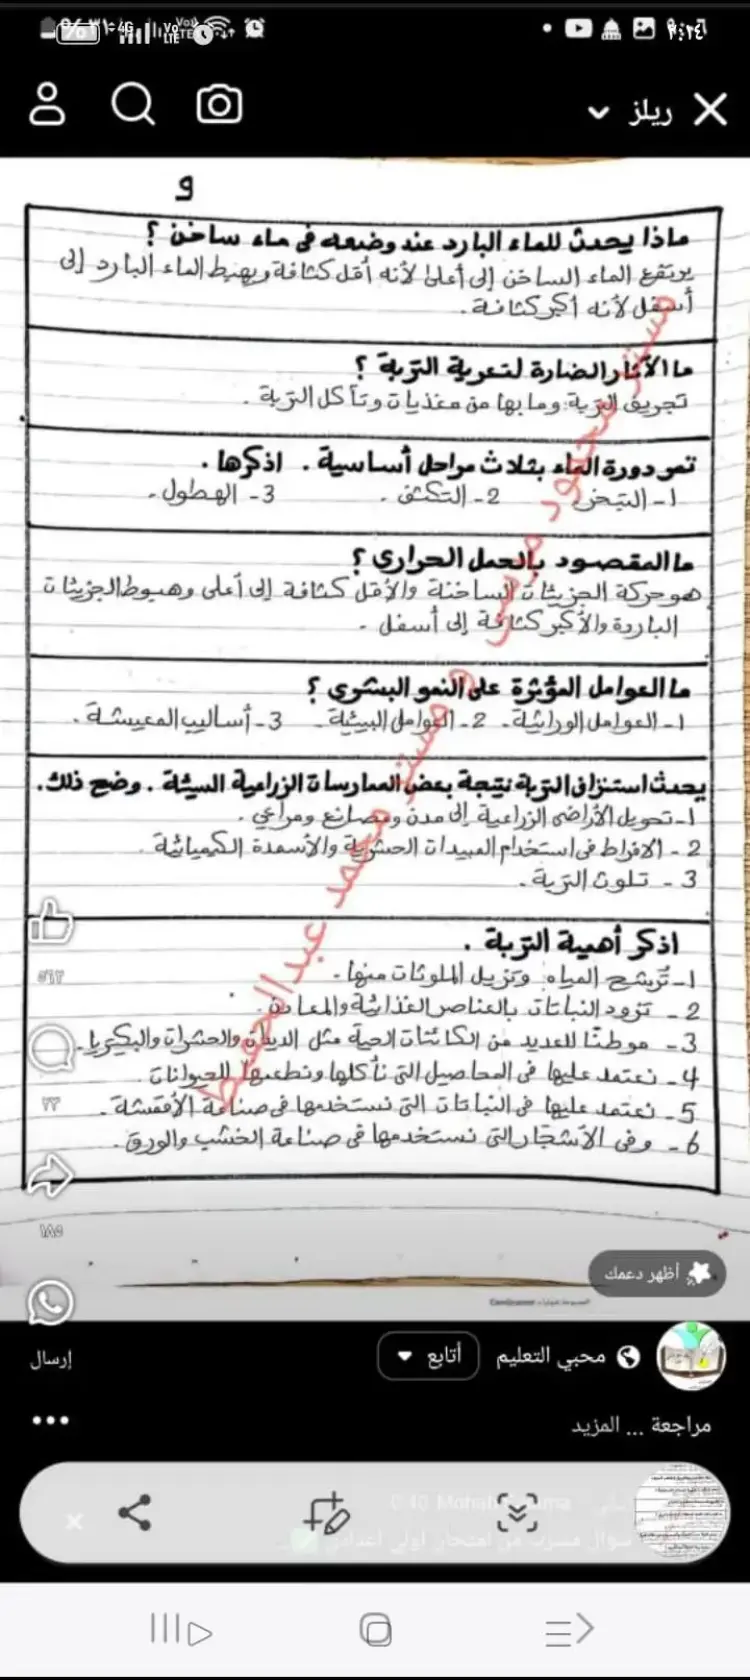 ريلز
و
ماذا يحدث للماء البارد عند وضعه في ماء ساخن ؟
يرتفع الماء الساخن إلى أعلى لأنه أقل كثافة ويهبط الماء البارد إلى
أسفل لأنه أكبر كثافة .
ما الآثار الضارة لتعرية التربة ؟
تجريف التربة وما بها من مغذيات وتآكل التربة .
تمر دورة الماء بثلاث مراحل أساسية . اذكرها .
1- التبخر 2- التكثف . 3- الهطول .
ما المقصود بالحمل الحراري ؟
هو حركة الجزيئات الساخنة والأقل كثافة إلى أعلى وهبوط الجزيئات
الباردة والأكبر كثافة إلى أسفل .
ما العوامل المؤثرة على النمو البشري ؟
1- العوامل الوراثية . 2- العوامل البيئية . 3- أساليب المعيشة .
يحدث استنزاف التربة نتيجة بعض الممارسات الزراعية السيئة . وضح ذلك .
1- تحويل الأراضي الزراعية إلى مدن ومصانع ومراعي .
2- الافراط في استخدام المبيدات الحشرية والأسمدة الكيميائية .
3- تلوث التربة .
اذكر أهمية التربة .
1- ترشح المياه وتزيل الملوثات منها .
2- تزود النباتات بالعناصر الغذائية والمعادن .
3- موطنًا للعديد من الكائنات الحية مثل الديدان والحشرات والبكتريا .
4- نعتمد عليها في المحاصيل التى نأكلها ونطعمها للحيوانات .
5- نعتمد عليها في النباتات التى نستخدمها في صناعة الأقمشة .
6- وفي الأشجار التى نستخدمها في صناعة الخشب والورق .
مستر محمود مرسى و مستر محمد عبدالحفيظ
٢٢
١٨٥
أظهر دعمك
محبي التعليم
أتابع
إرسال
مراجعة ... المزيد